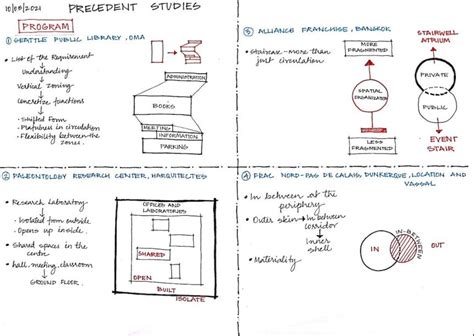 10/09/2021
PRECEDENT STUDIES
PROGRAM
① SEATTLE PUBLIC LIBRARY, OMA
• List of the Requirement
Understanding
Vertical zoning
Concretize functions
• Shifted Form
• Playfulness in circulation
• Flexibility between the zones.
ADMINISTRATION
BOOKS
MEETING
INFORMATION
PARKING
③ ALLIANCE FRANCHISE, BANGKOK
• Staircase - more than
just circulation
MORE
FRAGMENTED
SPATIAL
ORGANISATION
LESS
FRAGMENTED
STAIRWELL
ATRIUM
PRIVATE
PUBLIC
EVENT
STAIR
② PALEONTOLOGY RESEARCH CENTER, HARQUITECTES
• Research Laboratory
• Isolated from outside
• Opens up inside.
• Shared spaces in the
centre
• hall, meeting, classroom
GROUND FLOOR.
OFFICES AND
LABORATORIES
SHARED
OPEN
BUILT
ISOLATE
④ FRAC NORD-PAS DE CALAIS, DUNKERQUE, LOCATION AND
VASSAL
• In between at the
periphery
• Outer skin → In between
corridor
Inner
shell
• Materiality
IN
IN-BETWEEN
OUT